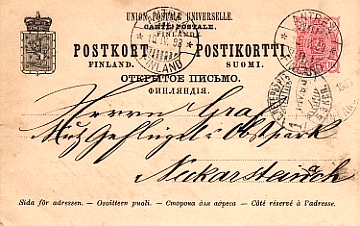 UNION POSTALE UNIVERSELLE.
CARTE POSTALE
FINLANDE
POSTKORT POSTIKORTTI
FINLAND. SUOMI.
ОТКРЫТОЕ ПИСЬМО.
ФИНЛЯНДІЯ.
FINLAND
ANTREA
Herrn Graf
Geflügel & Obstpark
Neckarsteinach
Sida för adressen. - Osoitteen puoli. - Сторона для адреса - Côté réservé à l'adresse.